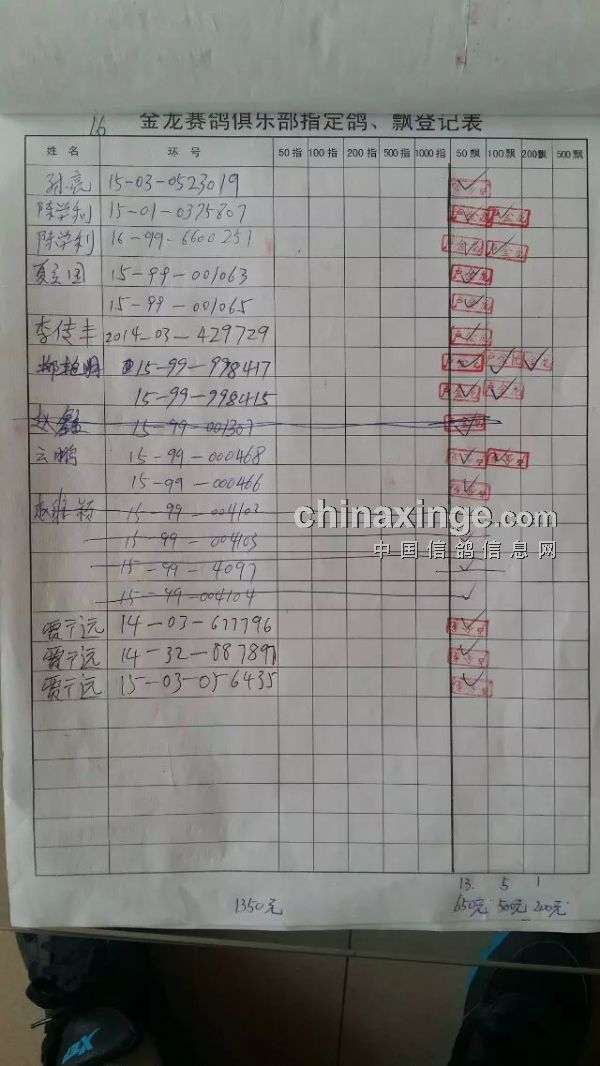 16 金龙赛鸽俱乐部指定鸽、飘登记表
姓名 环号 50指 100指 200指 500指 1000指 50飘 100飘 200飘 500飘
孙亮 15-03-0523019
陈学利 15-01-0375807
陈学利 16-99-6600251
夏立国 15-99-001063
15-99-001065
李传丰 2014-03-429729
柳艳明 15-99-998417
15-99-998415
赵鑫 15-99-001307
云鹏 15-99-000468
15-99-000466
15-99-004103
15-99-004103
15-99-4097
15-99-004104
贾宁远 14-03-677796
贾宁远 14-32-887897
贾宁远 15-03-056435
13. 5 1
1350元 650元 500元 200元
chinaxinge.com
中国信鸽信息网